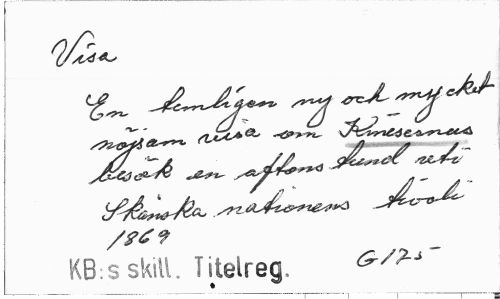 Visa
En temligen ny och mycket
nöjsam visa om Kinesernas
besök en aftonstund uti
Skånska nationens tivoli
1869
KB:s skill. Titelreg. G175